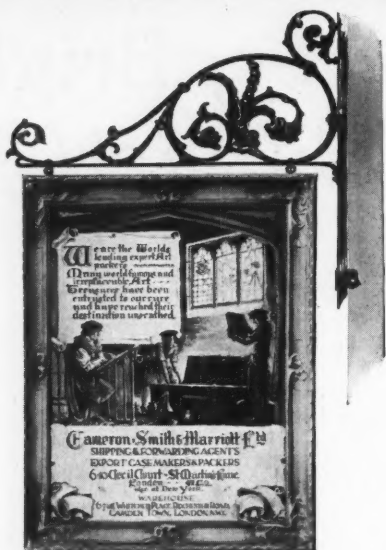 We are the Worlds
leading expert Art
packers
Many world famous and
irreplaceable Art
Treasures have been
entrusted to our care
and have reached their
destination unscathed.
Cameron-Smith & Marriott Ltd
SHIPPING & FORWARDING AGENTS
EXPORT CASE MAKERS & PACKERS
6-10 Cecil Court - St Martin's Lane
London W.C.2.
also at New York
WAREHOUSE
PLACE ROAD,
CAMDEN TOWN, LONDON N.W.1